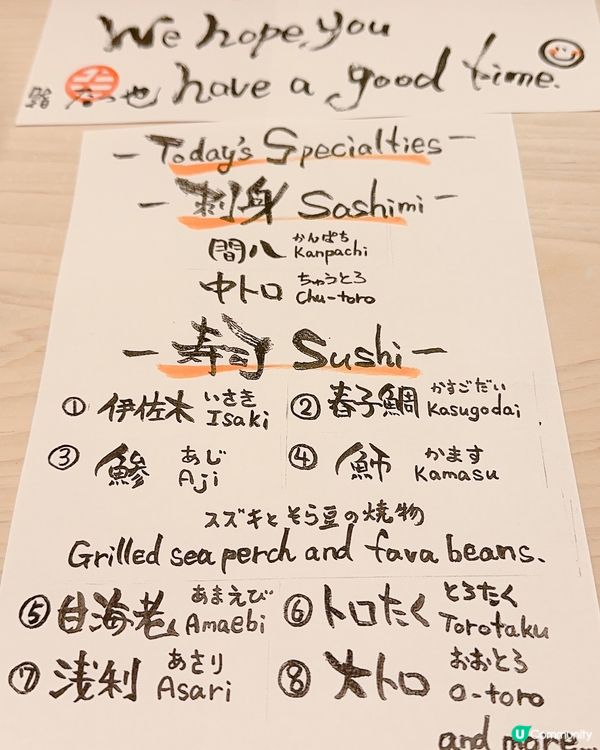 We hope, you
have a good time.
— Today's Specialties —
— 刺身 Sashimi —
間八 かんぱち Kanpachi
中トロ ちゅうとろ Chu-toro
— 寿司 Sushi —
① 伊佐木 いさき Isaki ② 春子鯛 かすごだい Kasugodai
③ 鯵 あじ Aji ④ 魳 かます Kamasu
スズキとそら豆の焼物
Grilled sea perch and fava beans.
⑤ 甘海老 あまえび Amaebi ⑥ トロたく とろたく Torotaku
⑦ 浅利 あさり Asari ⑧ 大トロ おおとろ O-toro
and more...
U Community